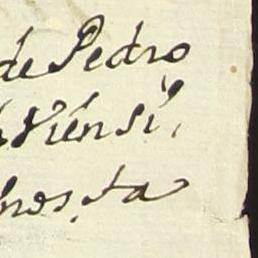 de Pedro
Vien si,
nos, ta